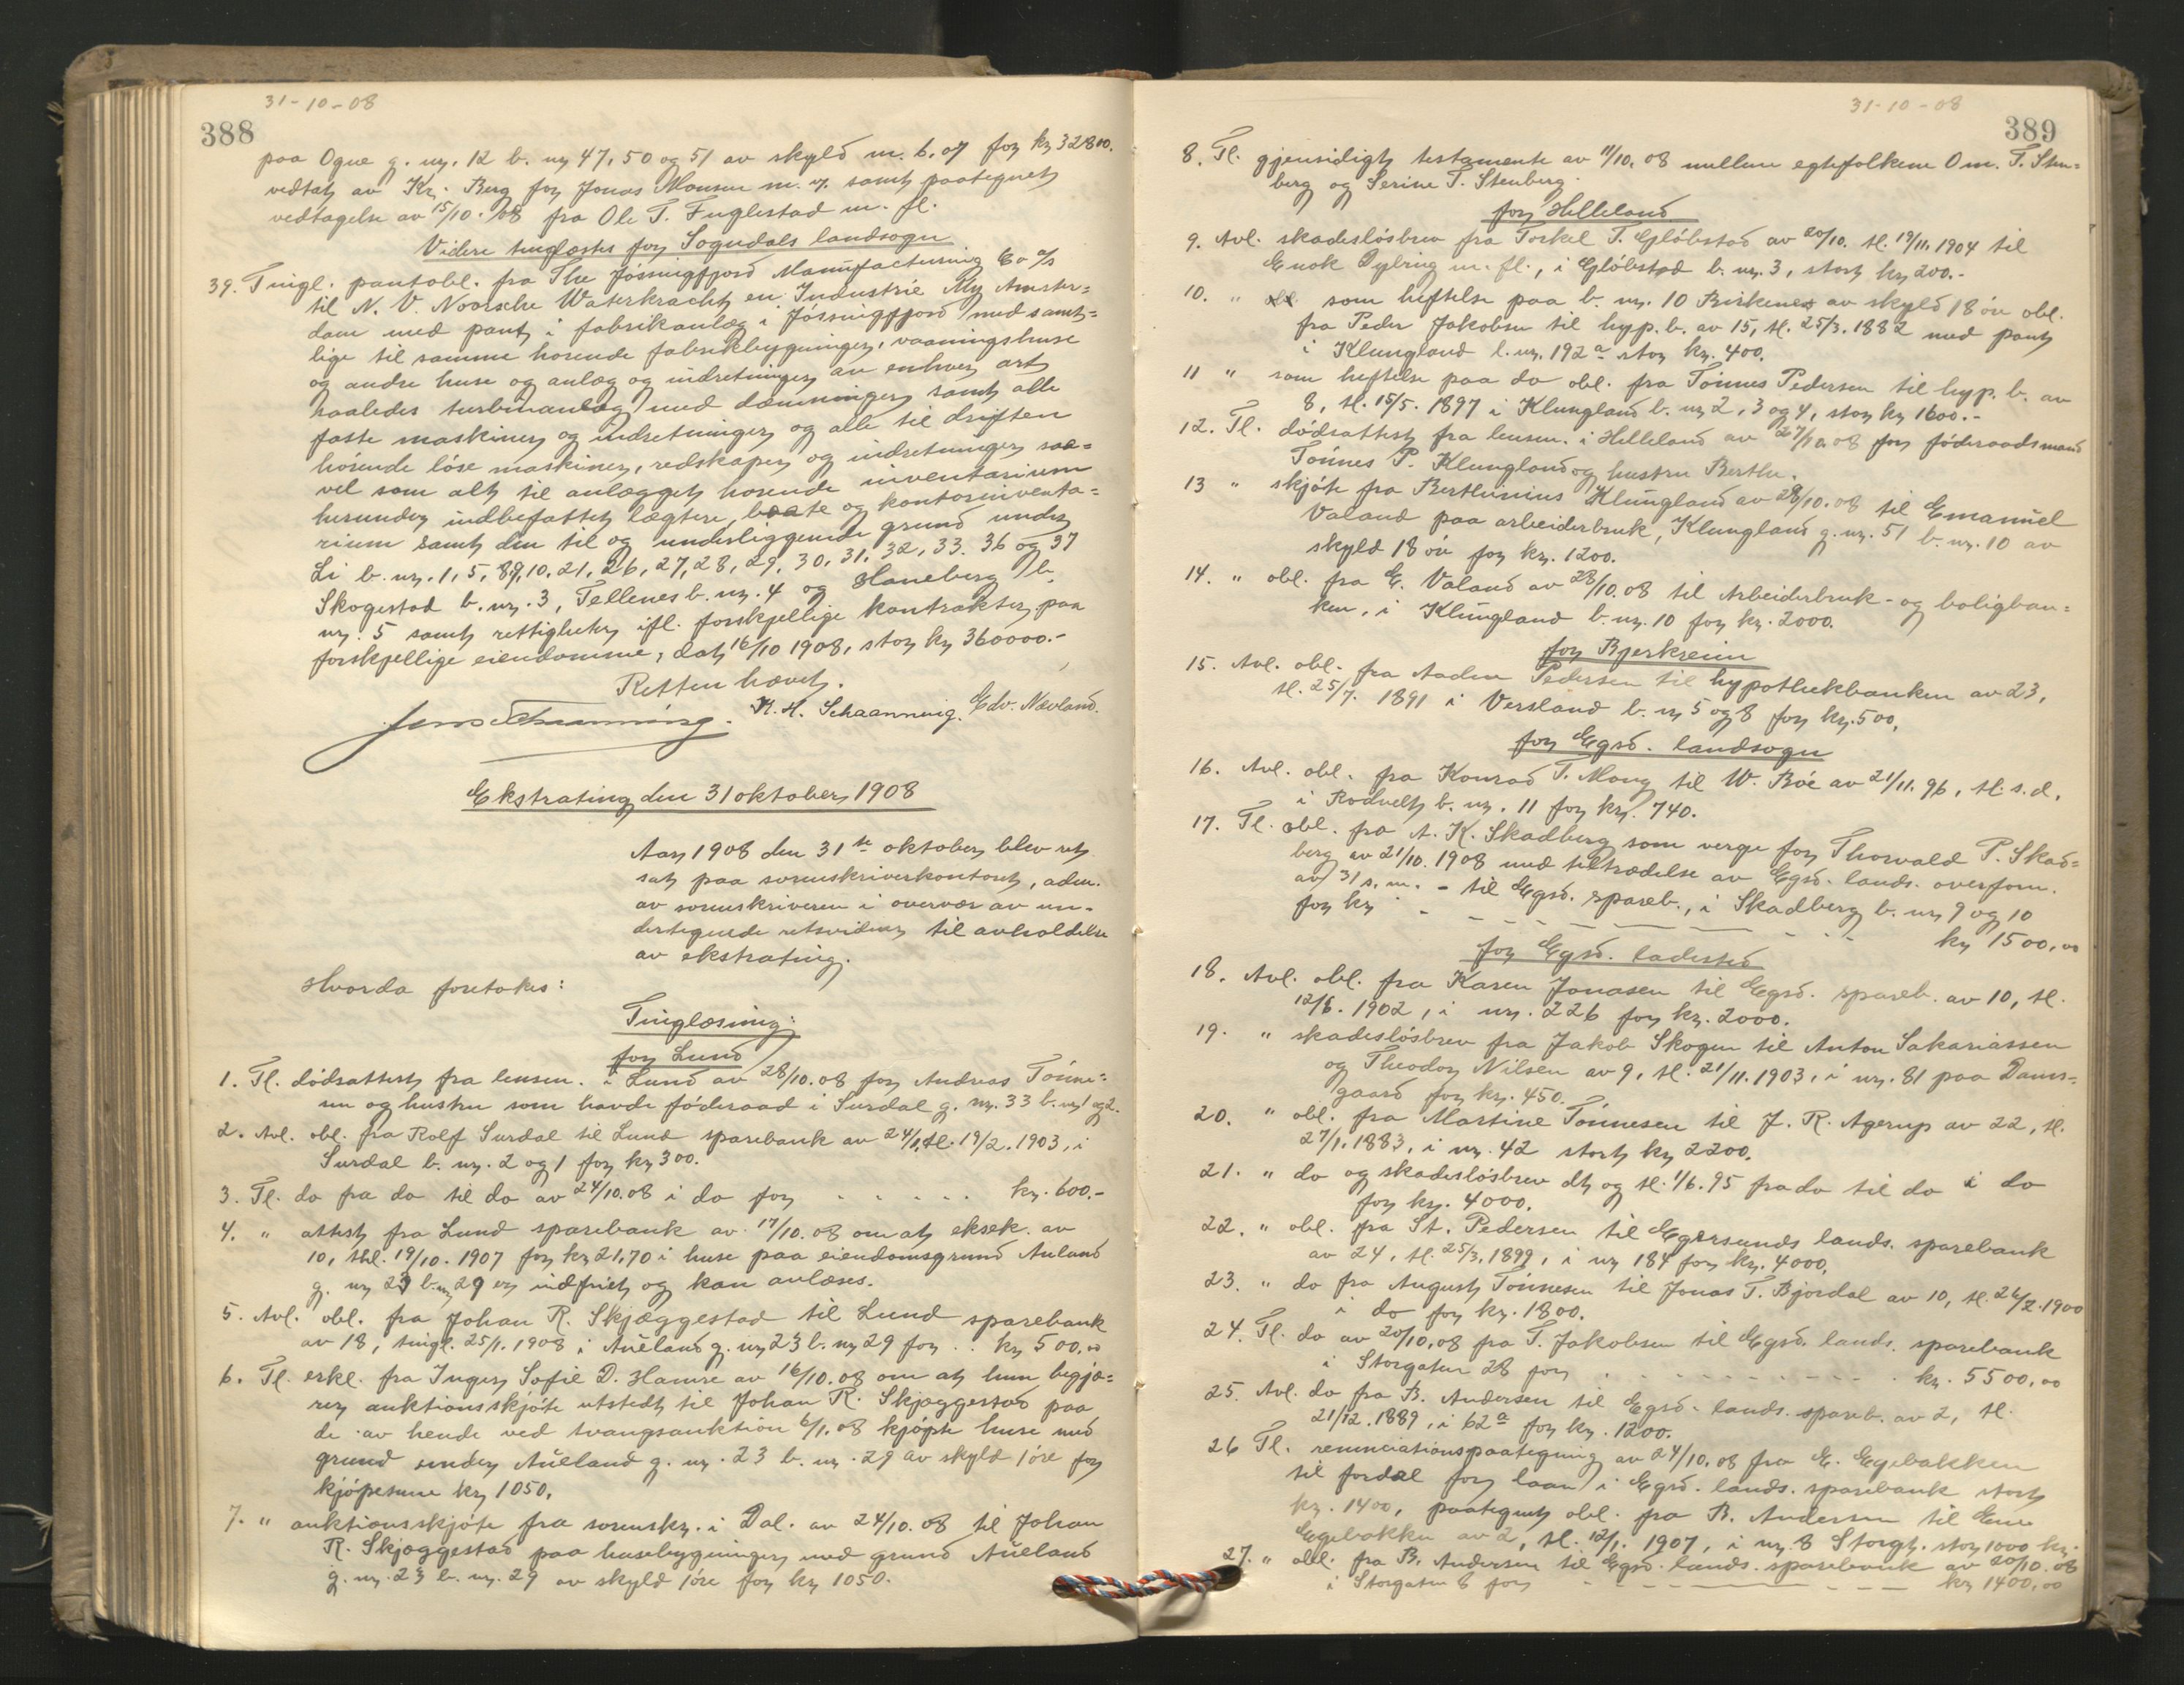 31-10-08
388
paa Ogne g. nr. 12 b. nr 47, 50 og 51 av skyld m. 6,07 for kr 32810.
vedtat av Kr. Berg for Jonas Monsen m. fl. samt paategnet
vedtagelse av 15/10. 08 fra Ole T. Fuglestad m. fl.
Videre tinglæstes for Sogndals landsogn
39. Tingl. pantobl. fra The Jøssingfjord Manufacturing Co a/s
til N. V. Noorsche Waterkracht en Industrie My Amster=
dam med pant i fabrikanlæg i Jøssingfjord med samt=
lige til samme hørende fabrikbygninger, vaaningshuse
og andre huse og anlæg og indretninger av enhver art
saaledes turbinanlæg med dæmninger samt alle
faste maskiner og indretninger og alle til driften
hørende løse maskiner, redskaper og indretninger saa=
vel som alt til anlægget hørende inventarium
herunder indbefattet lægtere, baate og kontorinventa=
rium samt den til og underliggende grund under
Li b. nr. 1, 5, 8, 9, 10, 21, 26, 27, 28, 29, 30, 31, 32, 33. 36 og 37
Skogestad b. nr. 3, Tellenes b. nr. 4 og Haneberg b.
nr. 5 samt rettigheter ifl. forskjellige kontrakter paa
forskjellige eiendomme, dat 16/10 1908, stor kr 360000.-
Retten hævet.
K. H. Schaanning. Edv. Nævland.
Ekstrating den 31 oktober 1908
Aar 1908 den 31te oktober blev ret
sat paa sorenskriverkontoret, adm.
av sorenskriveren i overvær av un-
dertegnede retsvidner til avholdelse
av ekstrating.
Hvorda foretokes:
Tinglæsning:
for Lund
1. Tl. dødsattest fra lensm. i Lund av 28/10.08 for Andreas Tønne=
sen og hustru som havde føderaad i Surdal g. nr. 33 b. nr 1 og 2.
2. Avl. obl. fra Rolf Surdal til Lund sparebank av 24/1, tl. 19/2. 1903, i
Surdal b. nr. 2 og 1 for kr 300.
3. Tl. do fra do til do av 24/10.08 i do for . . . . . . kr. 600.-
4. " attest fra Lund sparebank av 17/10. 08 om at eksek. av
10, thl. 19/10. 1907 for kr 21,70 i huse paa eiendomsgrund Auland
g. nr 23 b. nr 29 er indfriet og kan avlæses.
5. Avl. obl. fra Johan R. Skjæggestad til Lund sparebank
av 18, tingl. 25/1. 1908 i Aueland g. nr 23 b. nr 29 for . . kr 500,00
6. Tl. erkl. fra Inger Sofie D. Hamre av 16/10. 08 om at hun begjæ=
rer auktionsskjøte utstedt til Johan R. Skjæggestad paa
de av hende ved tvangsauktion 6/1. 08 kjøpte huse med
grund under Aueland g. nr. 23 b. nr. 29 av skyld 1 øre for
kjøpesum kr 1050,
7. " auktionsskjøte fra sorenskr. i Dal. av 24/10. 08 til Johan
R. Skjæggestad paa husebygninger med grund Aueland
g. nr. 23 b. nr. 29 av skyld 1 øre for kr 1050.
31-10-08
389
8. Tl. gjensidigt testamente av 11/10. 08 mellem egtefolkene Om. T. Sten=
berg og Serine T. Stenberg.
for Helleland
9. Avl. skadesløsbrev fra Torkel T. Gløbstad av 20/10. tl. 19/11. 1904 til
Enok Dybing m. fl., i Gløbstad b. nr. 3, stort kr 200.-
10. " som heftelse paa b. nr. 10 Birkenes av skyld 18 øre obl.
fra Peder Jakobsen til hyp. b. av 15, tl. 25/3. 1882 med pant
i Klungland l. nr. 192a stor kr. 400.
11 " som heftelse paa do obl. fra Tønnes Pedersen til hyp. b. av
8, tl. 15/5. 1897 i Klungland b. nr 2, 3 og 4, stor kr 1600.-
12. Tl. dødsattest fra lensm. i Helleland av 27/10.08 for føderaadsmand
Tønnes P. Klungland og hustru Berthe.
13 " skjøte fra Berthinius Klungland av 28/10.08 til Emanuel
Valand paa arbeiderbruk, Klungland g. nr. 51 b. nr. 10 av
skyld 18 øre for kr. 1200.
14. " obl. fra E. Valand av 28/10.08 til Arbeiderbruk- og boligban=
ken, i Klungland b. nr. 10 for kr. 2000.
for Bjerkreim
15. Avl. obl. fra Aaden Pedersen til hypothekbanken av 23,
tl. 25/7. 1891 i Versland b. nr 5 og 8 for kr. 500,
for Egsd. landsogn
16. Avl. obl. fra Konrad T. Mong til W. Bøe av 21/11. 96, tl. s. d.
i Rodvelt b. nr. 11 for kr. 740.
17. Tl. obl. fra A. K. Skadberg som verge for Thorvald P. Skad=
berg av 21/10. 1908 med tiltrædelse av Egsd. lands. overform.
av 31 s. m. - til Egsd. spareb., i Skadberg b. nr 9 og 10
for kr - - - - - - - - - kr 1500,00
for Egsd. ladested
18. Avl. obl. fra Karen Jonasen til Egsd. spareb. av 10, tl.
12/6. 1902, i nr. 226 for kr. 2000.
19. " skadesløsbrev fra Jakob Skogen til Anton Sakariassen
og Theodor Nilsen av 9, tl. 21/11. 1903, i nr. 81 paa Dams-
gaard for kr. 450.
20. " obl. fra Martine Tønnesen til J. R. Agerup av 22, tl.
27/1. 1883, i nr. 42 stort kr 2200.
21. " do og skadesløsbrev dt og tl. 1/6. 95 fra do til do i do
for kr. 4000.
22. " obl. fra St. Pedersen til Egersunds lands. sparebank
av 24, tl. 25/3. 1899, i nr 184 for kr. 4000.
23. " do fra August Tønnesen til Jonas T. Bjordal av 10, tl. 26/2. 1900
i do for kr. 1800.
24. Tl. do av 20/10.08 fra T. Jakobsen til Egsd. lands. sparebank
i Storgaten 28 for . . . . . . . . . . kr. 5500,00
25. Avl. do fra B. Andersen til Egsd. lands. spareb. av 2, tl.
21/12. 1889, i 62a for kr. 1200.
26 Tl. renunciationspaategning av 24/10.08 fra E. Egebakken
til fordel for laan i Egsd. lands. sparebank stort
kr. 1400, paategnet obl. fra B. Andersen til Enu
Egebakken av 2, tl. 12/1. 1907, i nr. 8 Storgt. stor 1000 kr.
27. " obl. fra B. Andersen til Egsd. lands. sparebank av 20/10.08
i Storgaten 8 for - - - - - - - kr 1400,00